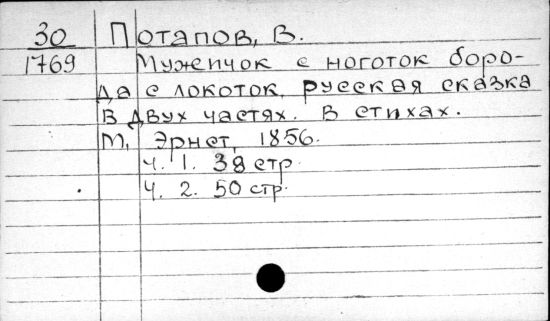 30 Потапов, В.
1769 Мужепчок с ноготок боро-
да с локоток, русская сказка
в двух частях. В стихах.
М, Эрнст, 1856.
Ч. 1. 38 стр.
Ч. 2. 50 стр.